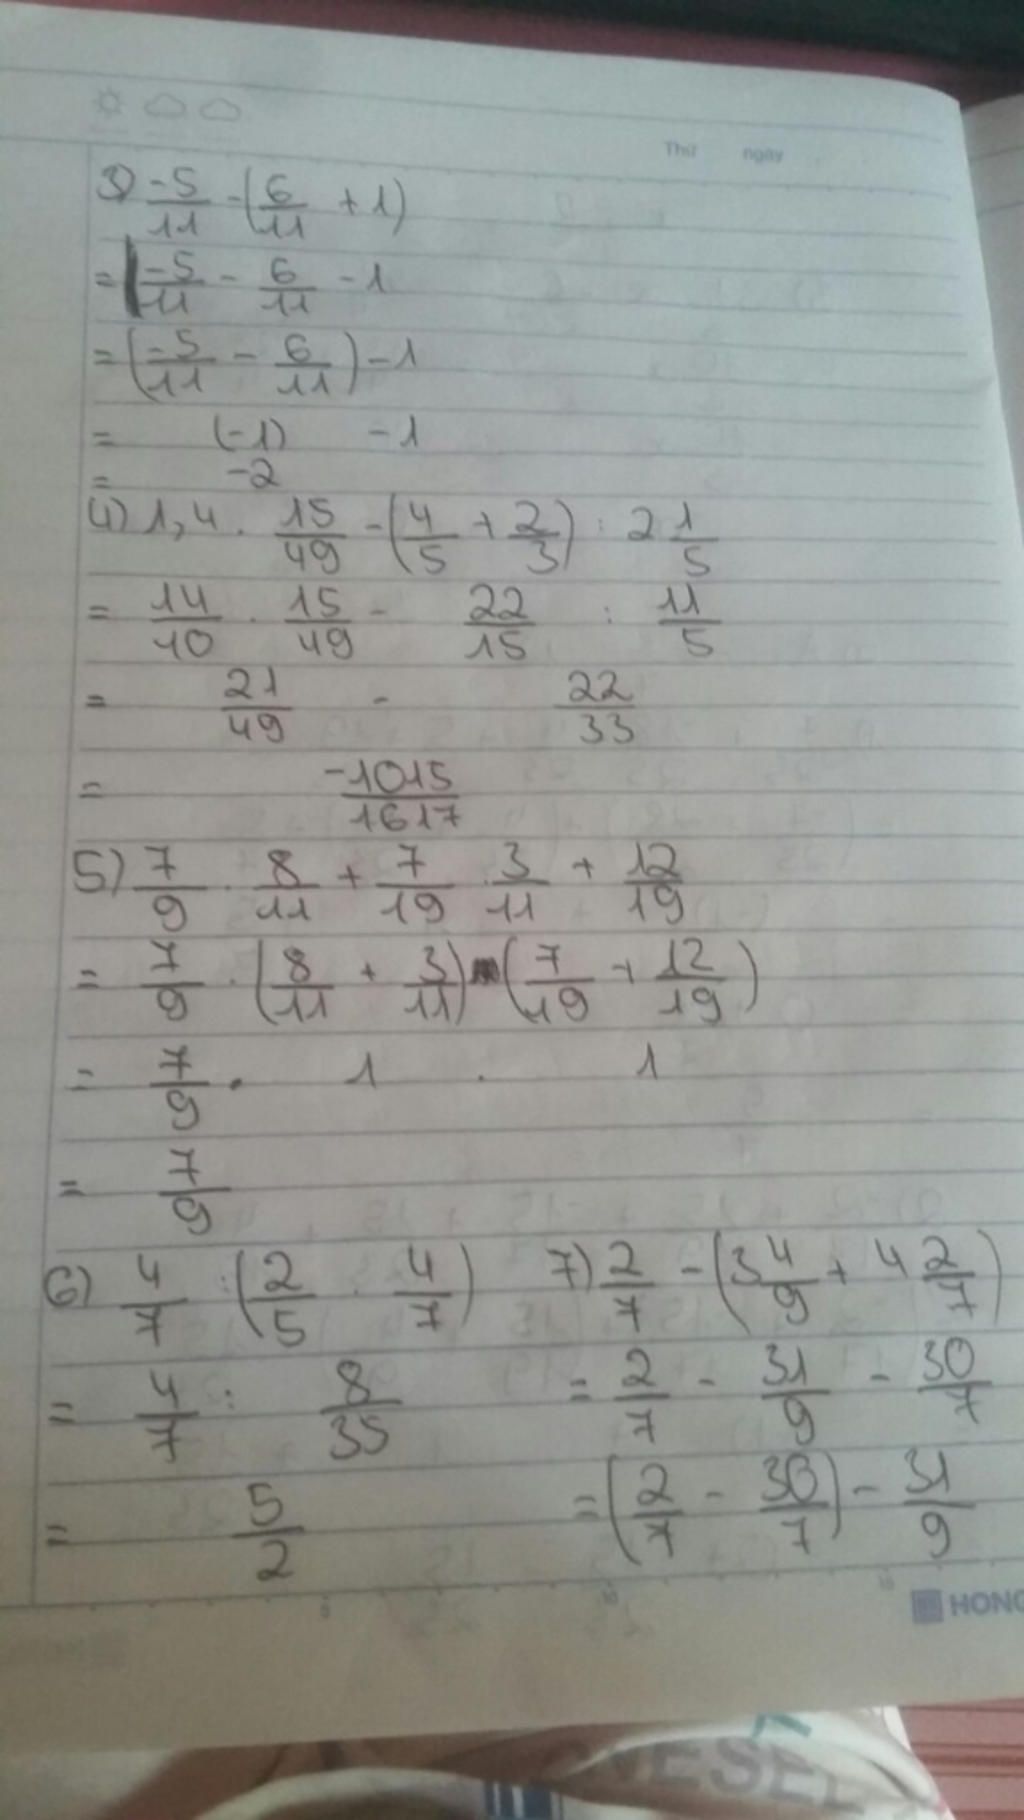 Thứ ngày
3) -5/11 - (6/11 + 1)
= -5/11 - 6/11 - 1
= (-5/11 - 6/11) - 1
= (-1) - 1
= -2
4) 1,4 . 15/49 - (4/5 + 2/3) : 2 1/5
= 14/10 . 15/49 - 22/15 : 11/5
= 21/49 - 22/33
= -1015/1617
5) 7/9 . 8/11 + 7/19 . 3/11 + 12/19
= 7/9 . (8/11 + 3/11) (7/19 + 12/19)
= 7/9 . 1 . 1
= 7/9
6) 4/7 : (2/5 . 4/7)
= 4/7 : 8/35
= 5/2
7) 2/7 - (3 4/9 + 4 2/7)
= 2/7 - 31/9 - 30/7
= (2/7 - 30/7) - 31/9
HONG